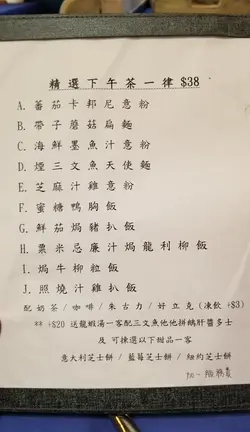 精選下午茶一律 $38
A. 蕃茄卡邦尼意粉
B. 帶子蘑菇扁麵
C. 海鮮墨魚汁意粉
D. 煙三文魚天使麵
E. 芝麻汁雞意粉
F. 蜜糖鴨胸飯
G. 鮮茄焗豬扒飯
H. 粟米忌廉汁焗龍利柳飯
I. 焗牛柳粒飯
J. 照燒汁雞扒飯
配奶茶 / 咖啡 / 朱古力 / 好立克 (凍飲 +$3)
** +$20 送龍蝦湯一客配三文魚他他拼鵝肝醬多士
及 可揀選以下甜品一客
意大利芝士餅 / 藍莓芝士餅 / 紐約芝士餅
加一服務費